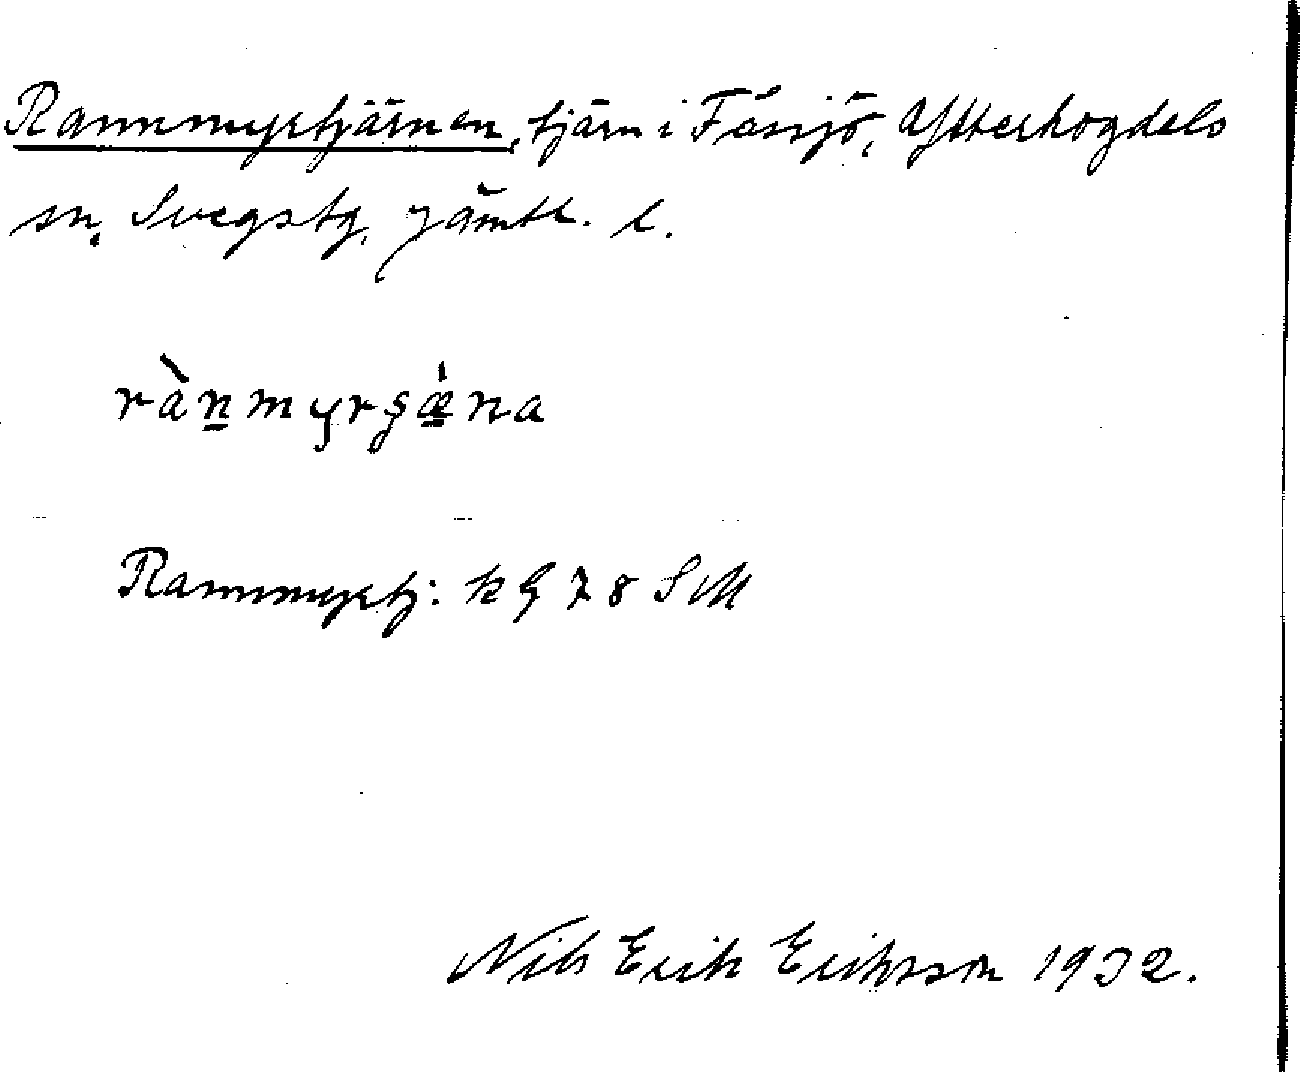 Rannmyrtjärnen, tjärn i Fåssjö, Ytterhogdals
sn, Svegstg, Jämtl. l.
rànmyrşǽna
Rannmyrtj: k G 78 SvM
Nils Erik Eriksson 1932.